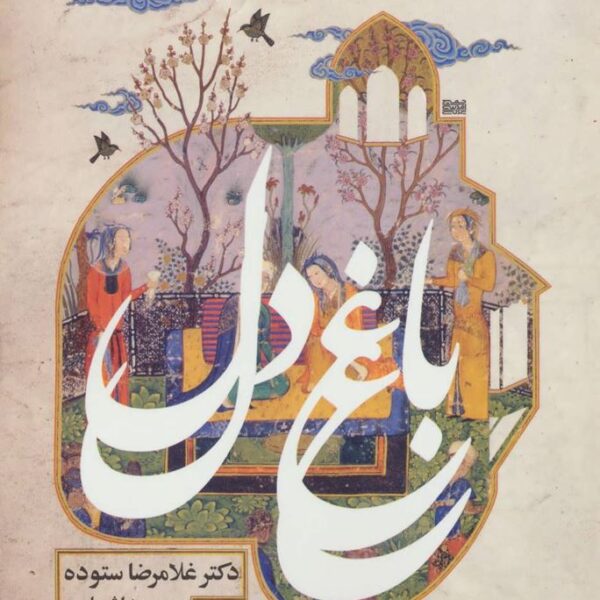 باغ دل
دکتر غلامرضا ستوده